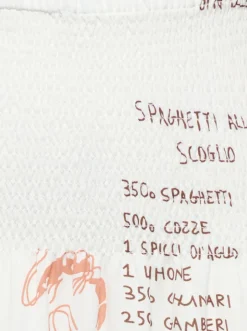 SPAGHETTI ALL
SCOGLIO
350G SPAGHETTI
500G COZZE
1 SPICCI DI'AGLIO
1 LIMONE
350 CALAMARI
250 GAMBERI